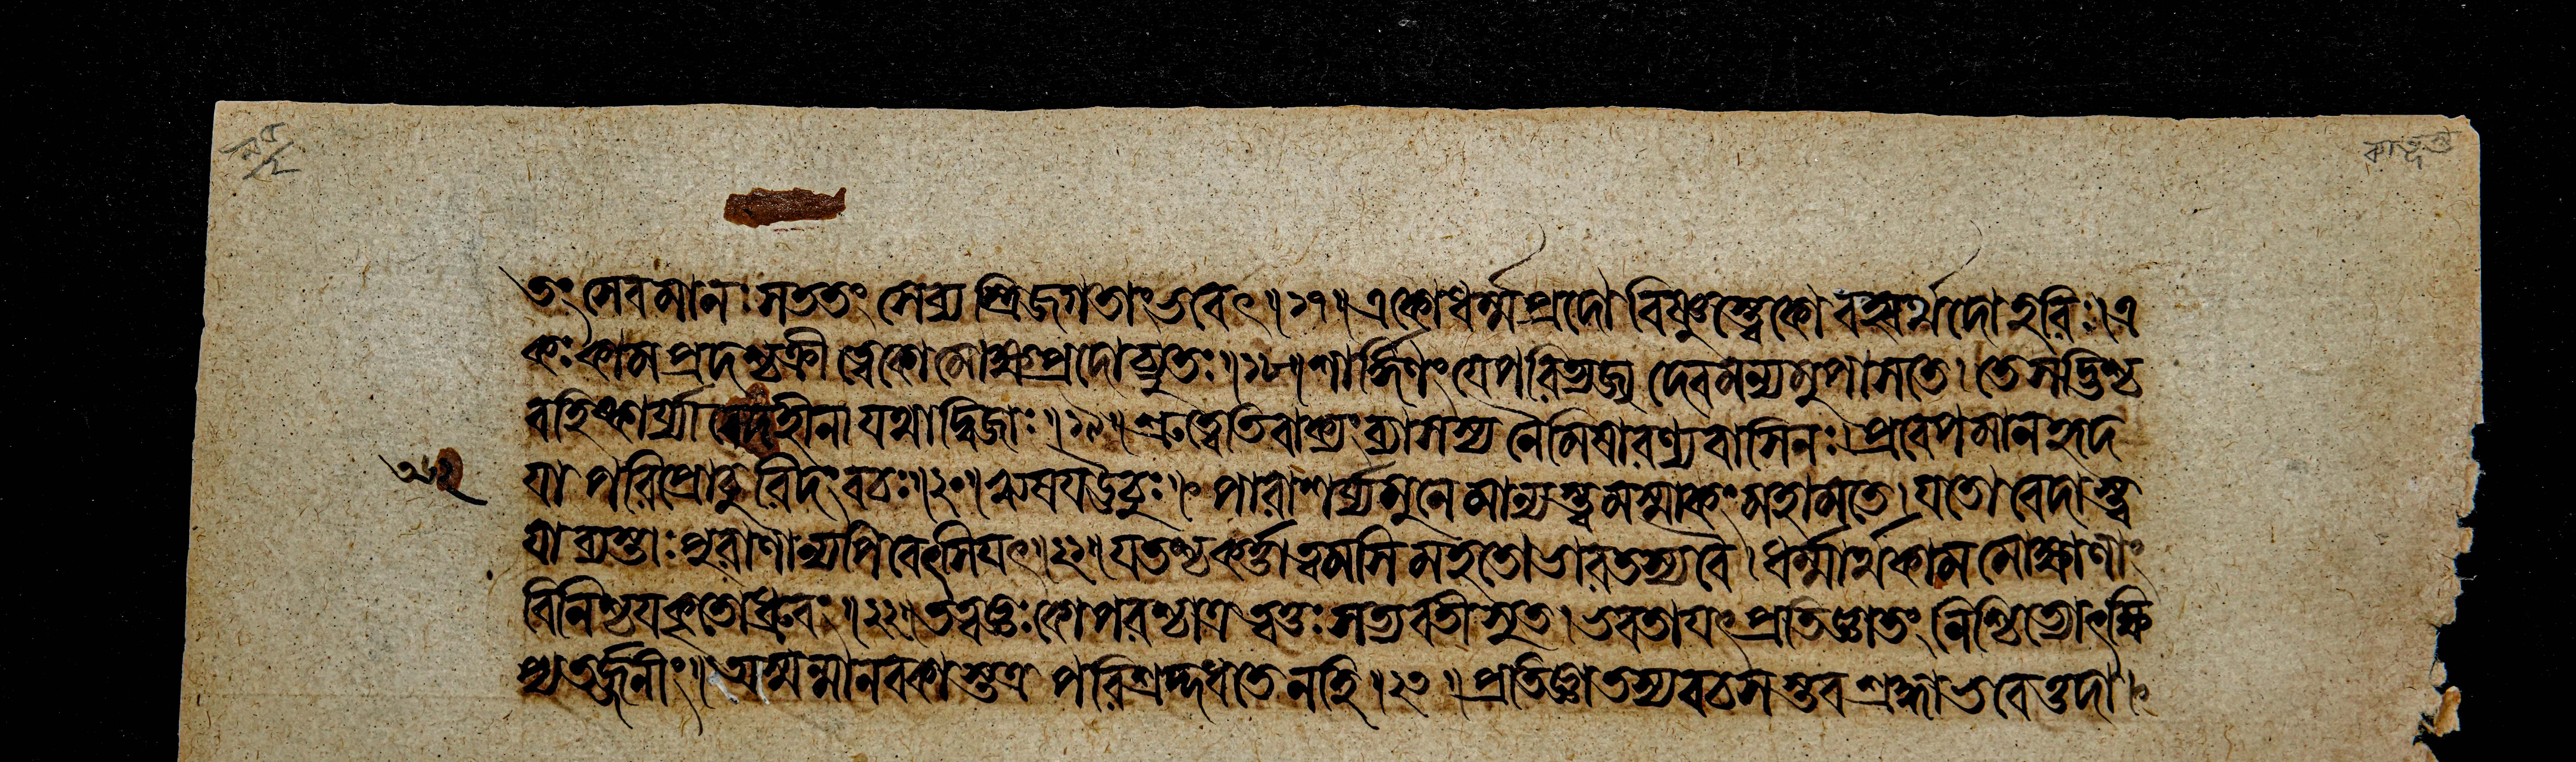 তং সেবমানঃ সততং সেব্য স্ত্রিজগতাং ভবেৎ॥১৭॥ একো ধর্ম্মপ্রদো বিষ্ণুস্ত্বেকো বহ্বর্থদো হরিঃ। এ
কঃ কামপ্রদশ্চক্রী ত্বেকো মোক্ষপ্রদোচ্যুতঃ॥১৮॥ শার্ঙ্গিণং যে পরিত্যজ্য দেবমন্যমুপাসতে। তে সদ্ভিশ্চ
বহিষ্কার্য্যা বেদহীনা যথা দ্বিজাঃ॥১৯॥ শ্রুত্বেতি বাক্যং ব্যাসস্য নৈমিষারণ্যবাসিনঃ। প্রবেপমানহৃদ
যা পরিপ্রোচুরিদং বচঃ॥২০॥ ঋষয ঊচুঃ॥ পারাশর্য্য মুনে মান্যস্ত্বমস্মাকং মহামতে। যতো বেদাস্ত্ব
যা ব্যস্তাঃ পুরাণান্যপি বেৎসি যৎ॥২১॥ যতশ্চ কর্ত্তা ত্বমসি মহতো ভারতস্য বৈ। ধর্ম্মার্থকামমোক্ষাণাং
বিনিশ্চযকৃতো ধ্রুবং॥২২॥ তত্ত্বজ্ঞঃ কোপরশ্চাত্র ত্বত্তঃ সত্যবতীসুত। ভবতা যৎ প্রতিজ্ঞাতং নিশ্চিত্যোৎক্ষি
প্য তর্জ্জনীং॥ অস্মন্মানবকাস্তত্র পরিশ্রদ্দধতে নহি॥২৩॥ প্রতিজ্ঞাতস্য বচসস্তব শ্রদ্ধা ভবেত্তদা॥